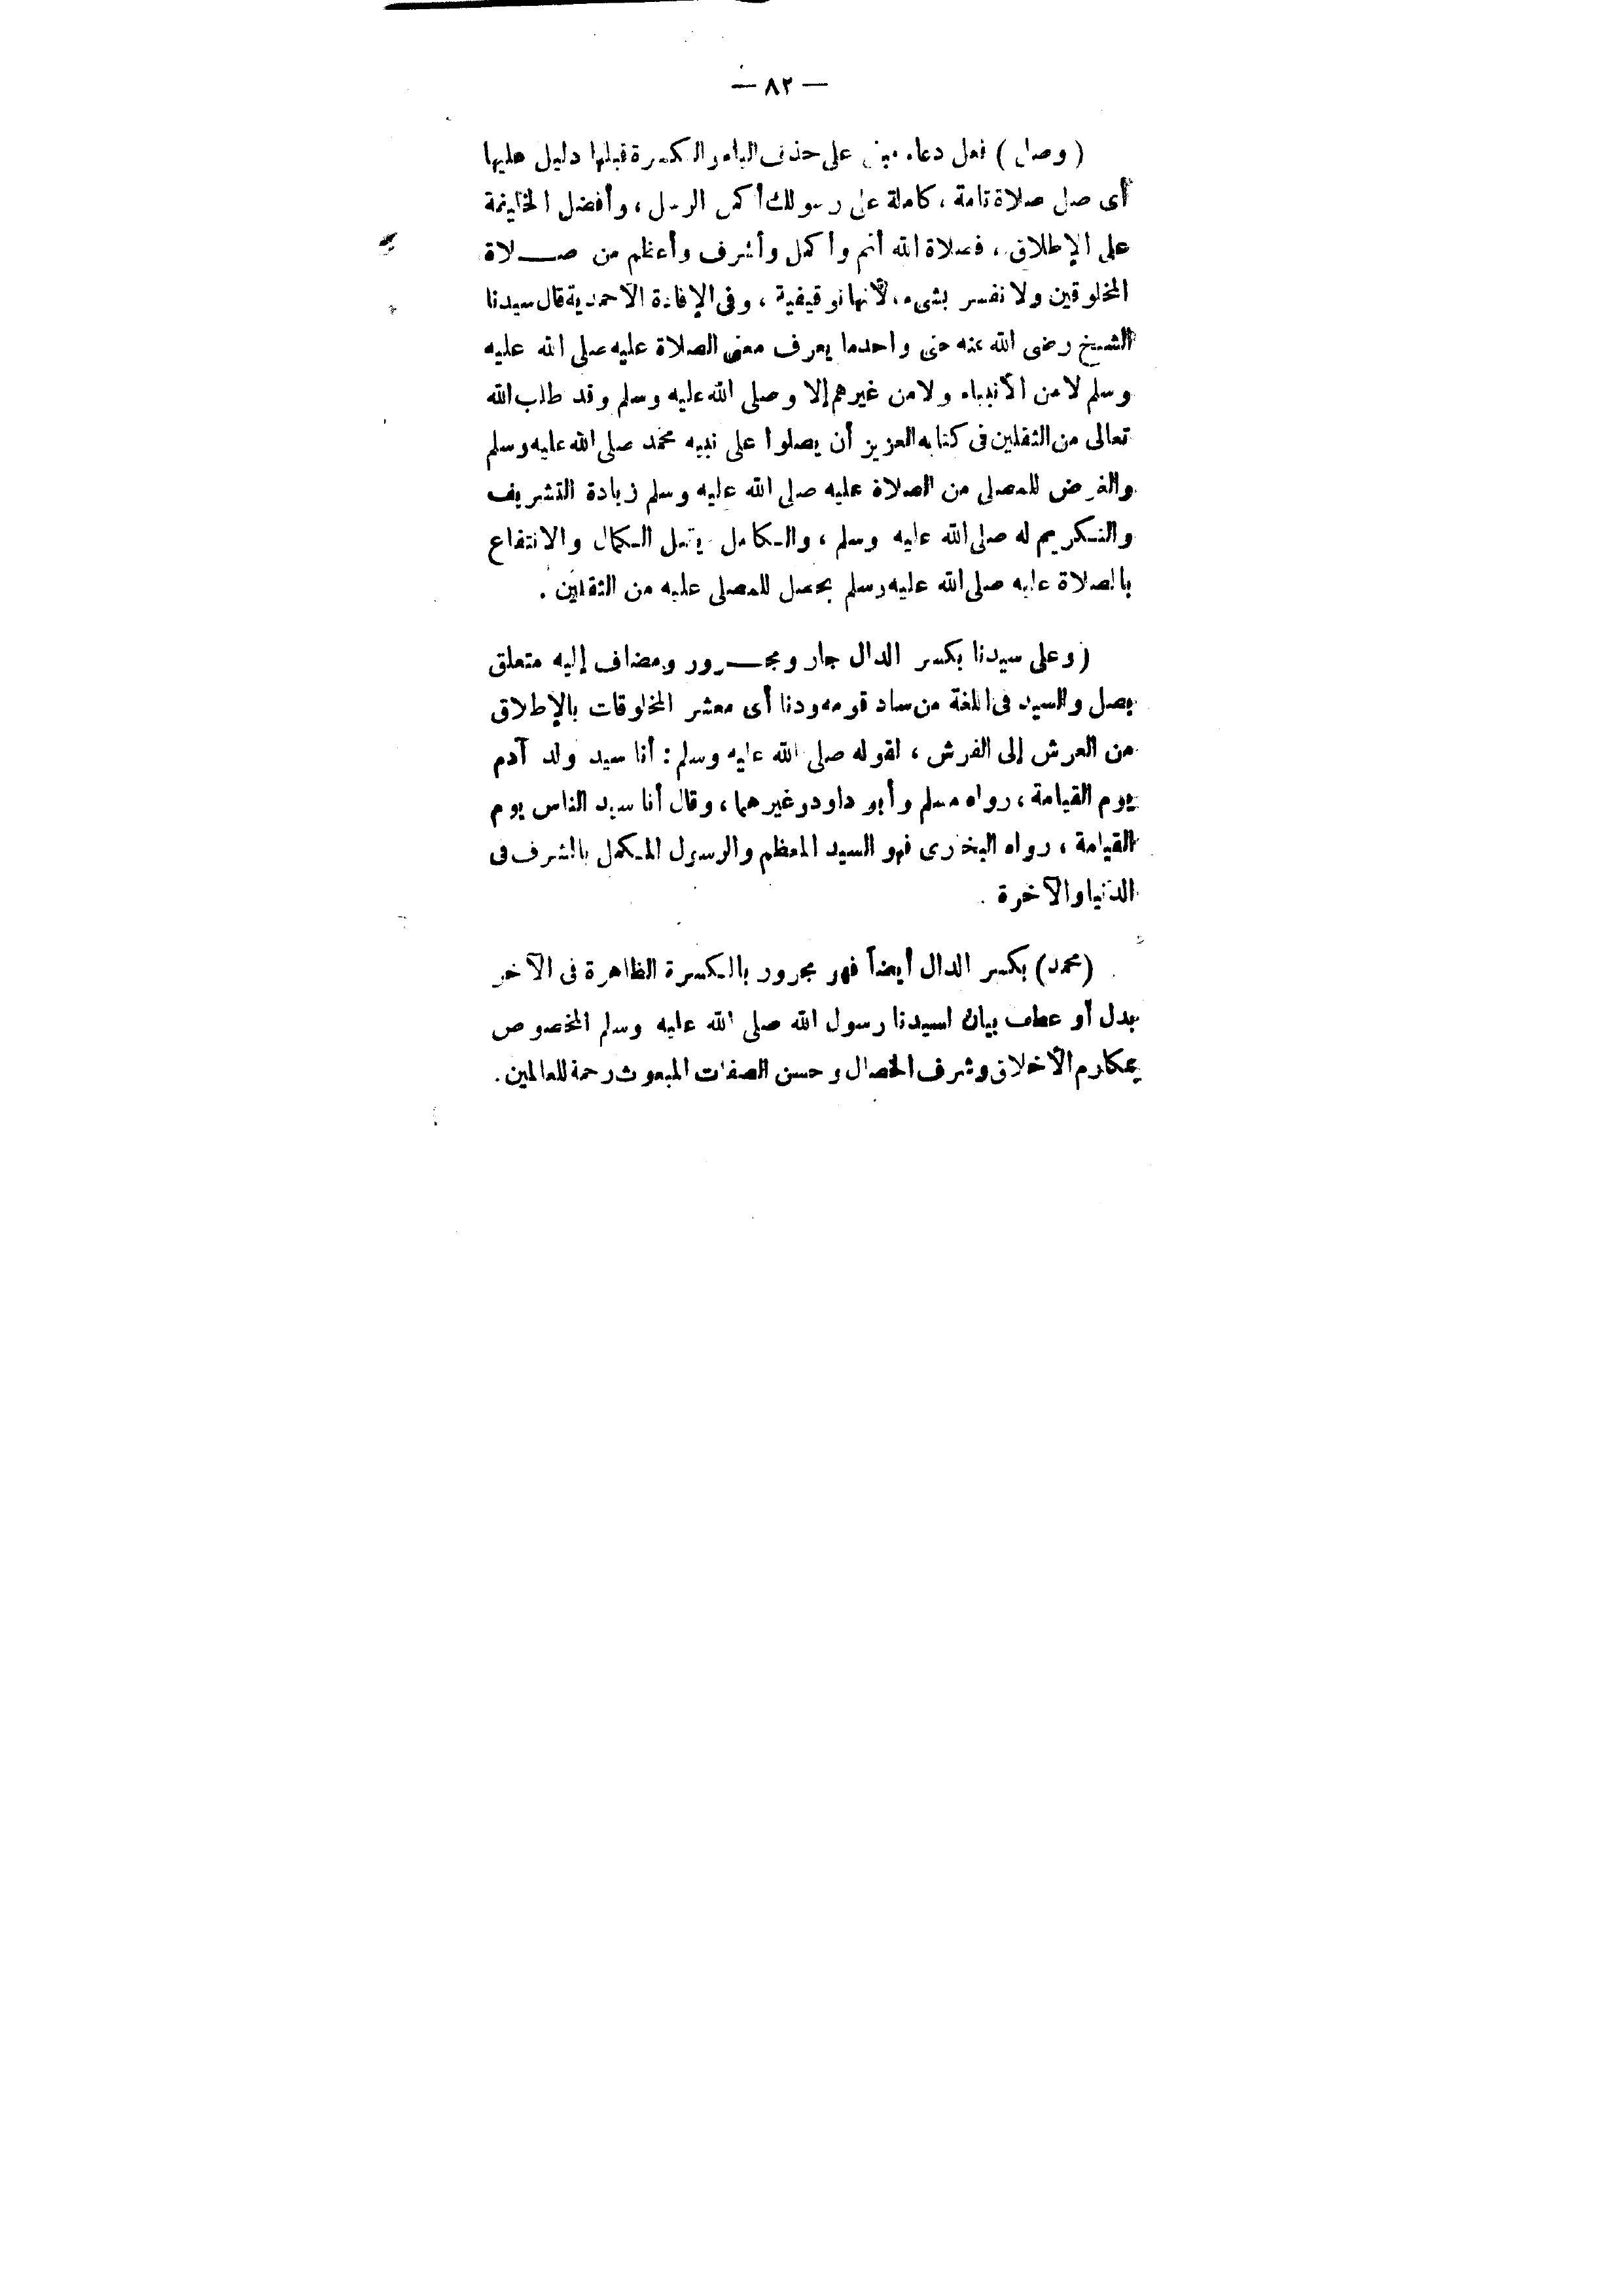 — ٨٢ —
( وصل ) فعل دعاء مبنى على حذف الياء والكسرة قبلها دليل عليها
أى صل صلاة تامة ، كاملة على رسولك أكمل الرسل ، وأفضل الخليقة
على الإطلاق ، فصلاة الله أتم وأكمل وأشرف وأعظم من صلاة
المخلوقين ولا نفسر بشىء لأنها توقيفية ، وفى الإفادة الأحمدية قال سيدنا
الشيخ رضى الله عنه حتى واحد ما يعرف معنى الصلاة عليه صلى الله عليه
وسلم لا من الأنبياء ولا من غيرهم إلا وصلى الله عليه وسلم وقد طلب الله
تعالى من الثقلين فى كتابه العزيز أن يصلوا على نبيه محمد صلى الله عليه وسلم
والغرض للمصلى من الصلاة عليه صلى الله عليه وسلم زيادة التشريف
والتكريم له صلى الله عليه وسلم ، والكامل يقبل الكمال والانتفاع
بالصلاة عليه صلى الله عليه وسلم يحصل للمصلى عليه من الثقلين .
( وعلى سيدنا بكسر الدال جار ومجرور ومضاف إليه متعلق
بصل والسيد فى اللغة من ساد قومه ودنا أى معشر المخلوقات بالإطلاق
من العرش إلى الفرش ، لقوله صلى الله عليه وسلم : أنا سيد ولد آدم
يوم القيامة ، رواه مسلم وأبو داود وغيرهما ، وقال أنا سيد الناس يوم
القيامة ، رواه البخارى فهو السيد المعظم والرسول المكمل بالشرف فى
الدنيا والآخرة .
(محمد) بكسر الدال أيضاً فهو مجرور بالكسرة الظاهرة فى الآخر
بدل أو عطف بيان لسيدنا رسول الله صلى الله عليه وسلم المخصوص
بمكارم الأخلاق وشرف الخصال وحسن الصفات المبعوث رحمة للعالمين .